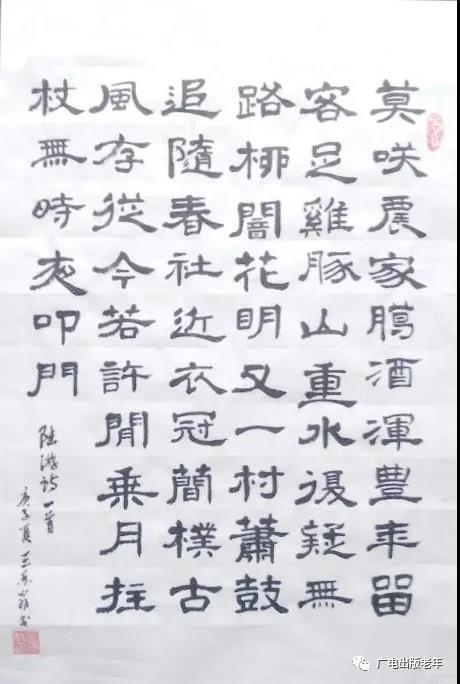 莫咲農家臈酒渾豊年留
客足雞豚山重水複疑無
路柳闇花明又一村蕭鼓
追隨春社近衣冠簡樸古
風存從今若許閒乘月拄
杖無時夜叩門
陆游诗一首
庚子夏
广电出版老年